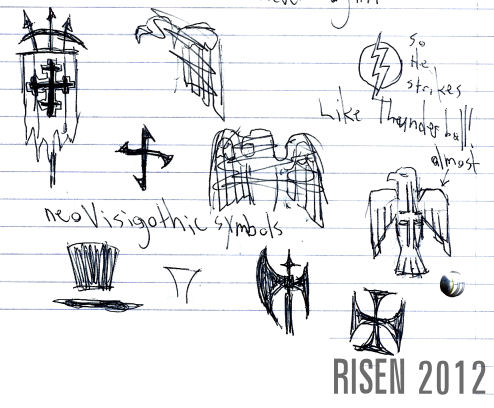 so
He
strikes
Like Thunder ball
almost
neoVisigothic symbols
RISEN 2012